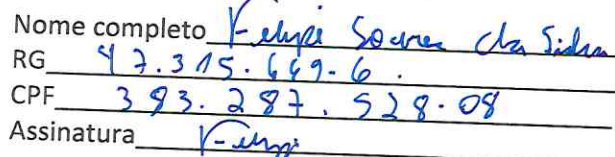 Nome completo Felipe Soares da Silva
RG 47.315.669-6.
CPF 383.287.528-08
Assinatura Felipe